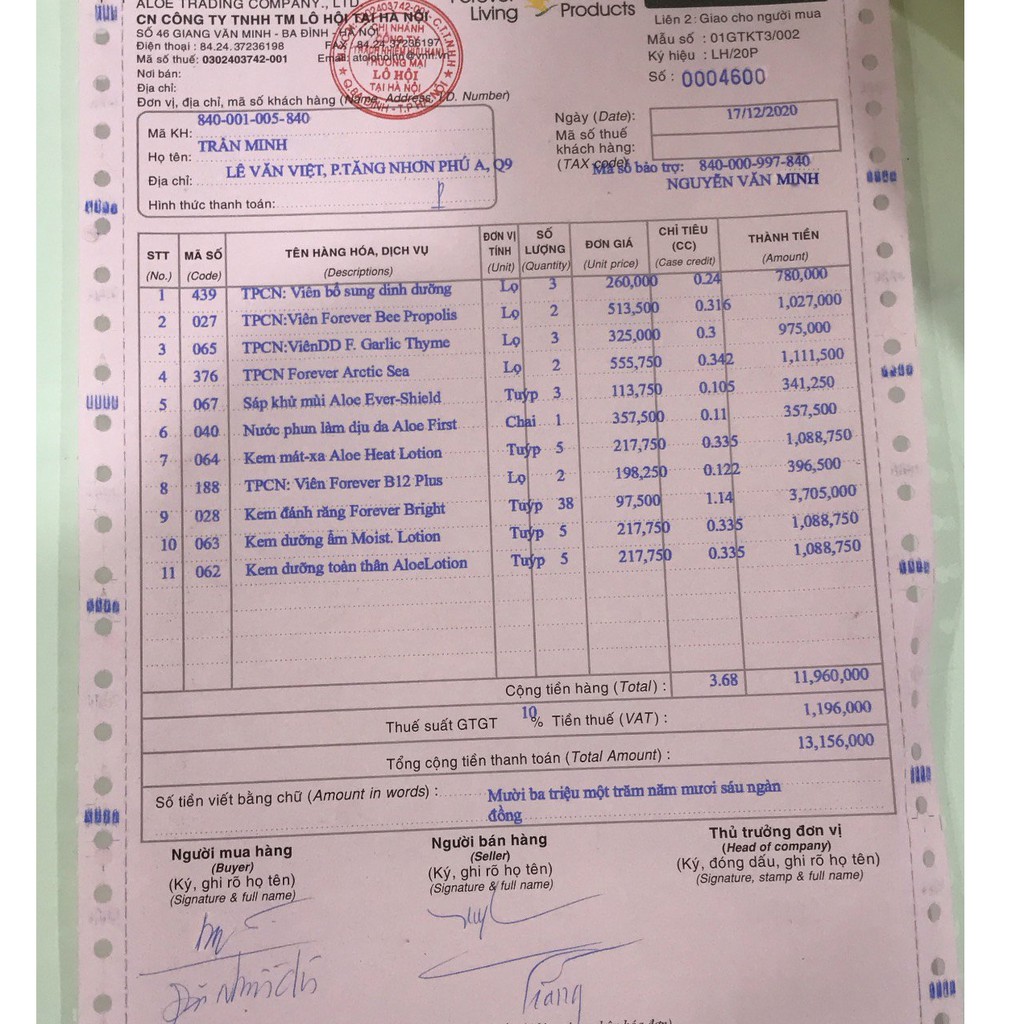 ALOE TRADING COMPANY., LTD
CN CÔNG TY TNHH TM LÔ HỘI TẠI HÀ NỘI
SỐ 46 GIANG VĂN MINH - BA ĐÌNH - HÀ NỘI
Điện thoại : 84.24.37236198 FAX : 84.24.37236197
Mã số thuế: 0302403742-001
Nơi bán:
Địa chỉ:
Đơn vị, địa chỉ, mã số khách hàng (Name, Address, I.D. Number)
CHI NHÁNH
CÔNG TY
TRÁCH NHIỆM HỮU HẠN
THƯƠNG MẠI
LÔ HỘI
TẠI HÀ NỘI
Forever
Living Products
Liên 2: Giao cho người mua
Mẫu số : 01GTKT3/002
Ký hiệu : LH/20P
Số : 0004600
Mã KH: 840-001-005-840
Họ tên: TRẦN MINH
Địa chỉ: LÊ VĂN VIỆT, P.TĂNG NHƠN PHÚ A, Q9
Hình thức thanh toán:
Ngày (Date): 17/12/2020
Mã số thuế
khách hàng:
(TAX code)
Mã số bảo trợ: 840-000-997-840
NGUYỄN VĂN MINH
STT MÃ SỐ TÊN HÀNG HÓA, DỊCH VỤ ĐƠN VỊ TÍNH SỐ LƯỢNG ĐƠN GIÁ CHỈ TIÊU (CC) THÀNH TIỀN
(No.) (Code) (Descriptions) (Unit) (Quantity) (Unit price) (Case credit) (Amount)
1 439 TPCN: Viên bổ sung dinh dưỡng Lọ 3 260,000 0.24 780,000
2 027 TPCN:Viên Forever Bee Propolis Lọ 2 513,500 0.316 1,027,000
3 065 TPCN:ViênDD F. Garlic Thyme Lọ 3 325,000 0.3 975,000
4 376 TPCN Forever Arctic Sea Lọ 2 555,750 0.342 1,111,500
5 067 Sáp khử mùi Aloe Ever-Shield Tuýp 3 113,750 0.105 341,250
6 040 Nước phun làm dịu da Aloe First Chai 1 357,500 0.11 357,500
7 064 Kem mát-xa Aloe Heat Lotion Tuýp 5 217,750 0.335 1,088,750
8 188 TPCN: Viên Forever B12 Plus Lọ 2 198,250 0.122 396,500
9 028 Kem đánh răng Forever Bright Tuýp 38 97,500 1.14 3,705,000
10 063 Kem dưỡng ẩm Moist. Lotion Tuýp 5 217,750 0.335 1,088,750
11 062 Kem dưỡng toàn thân AloeLotion Tuýp 5 217,750 0.335 1,088,750
Cộng tiền hàng (Total) : 3.68 11,960,000
Thuế suất GTGT 10 % Tiền thuế (VAT) : 1,196,000
Tổng cộng tiền thanh toán (Total Amount) : 13,156,000
Số tiền viết bằng chữ (Amount in words) : Mười ba triệu một trăm năm mươi sáu ngàn
đồng
Người mua hàng Người bán hàng Thủ trưởng đơn vị
(Buyer) (Seller) (Head of company)
(Ký, ghi rõ họ tên) (Ký, ghi rõ họ tên) (Ký, đóng dấu, ghi rõ họ tên)
(Signature & full name) (Signature & full name) (Signature, stamp & full name)